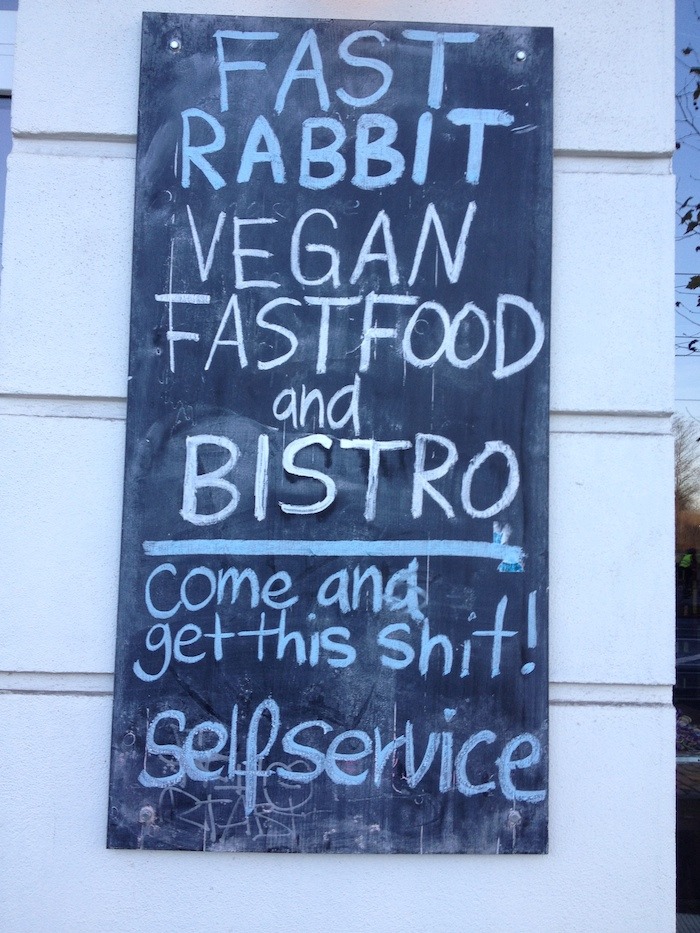 FAST
RABBIT
VEGAN
FASTFOOD
and
BISTRO
come and
get this shit!
selfservice